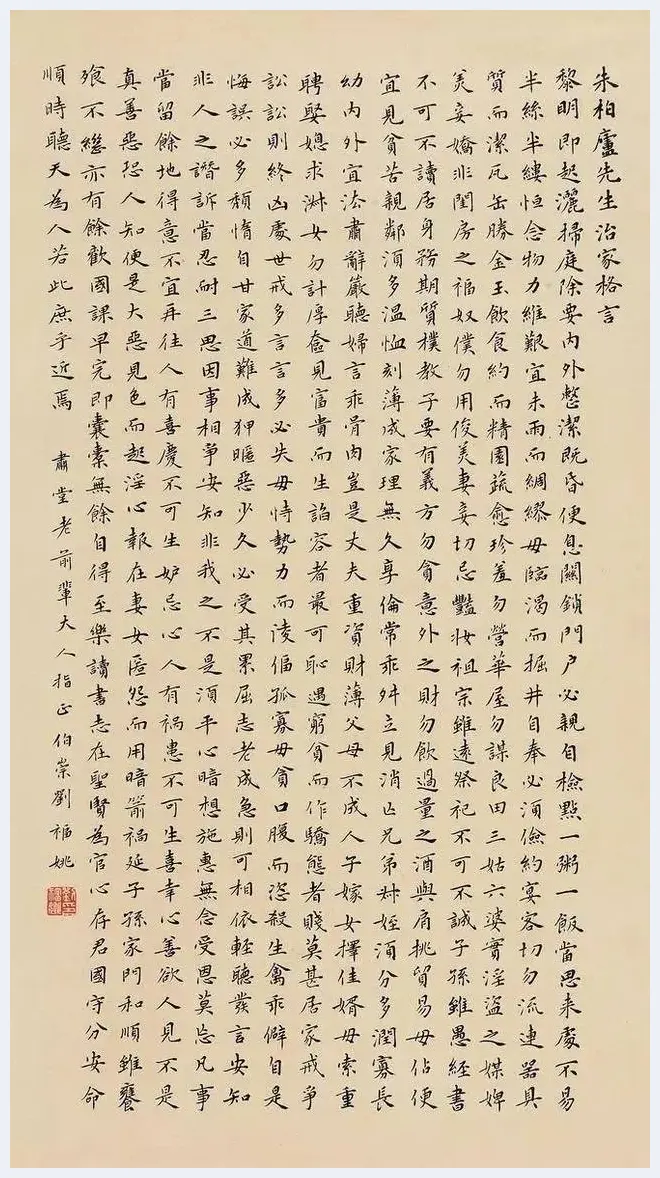 朱柏廬先生治家格言
黎明即起灑掃庭除要內外整潔既昏便息關鎖門戶必親自檢點一粥一飯當思来處不易
半絲半縷恒念物力維艱宜未雨而綢繆毋臨渴而掘井自奉必須儉約宴客切勿流連器具
質而潔瓦缶勝金玉飲食約而精園蔬愈珍羞勿營華屋勿謀良田三姑六婆實淫盜之媒婢
美妾嬌非閨房之福奴僕勿用俊美妻妾切忌豔妝祖宗雖遠祭祀不可不誠子孫雖愚經書
不可不讀居身務期質樸教子要有義方勿貪意外之財勿飲過量之酒與肩挑貿易毋佔便
宜見貧苦親鄰須多溫恤刻薄成家理無久享倫常乖舛立見消亡兄弟叔姪須分多潤寡長
幼內外宜法肅辭嚴聽婦言乖骨肉豈是丈夫重資財薄父母不成人子嫁女擇佳婿毋索重
聘娶媳求淑女勿計厚奩見富貴而生諂容者最可恥遇窮貧而作驕態者賤莫甚居家戒爭
訟訟則終凶處世戒多言言多必失毋恃勢力而凌偪孤寡毋貪口腹而恣殺生禽乖僻自是
悔誤必多頹惰自甘家道難成狎暱惡少久必受其累屈志老成急則可相依輕聽發言安知
非人之譖訴當忍耐三思因事相爭安知非我之不是須平心暗想施惠無念受恩莫忘凡事
當留餘地得意不宜再往人有喜慶不可生妒忌心人有禍患不可生喜幸心善欲人見不是
真善惡恐人知便是大惡見色而起淫心報在妻女匿怨而用暗箭禍延子孫家門和順雖饔
飧不繼亦有餘歡國課早完即囊橐無餘自得至樂讀書志在聖賢為官心存君國守分安命
順時聽天為人若此庶乎近焉
肅堂老前輩大人指正伯崇劉福姚